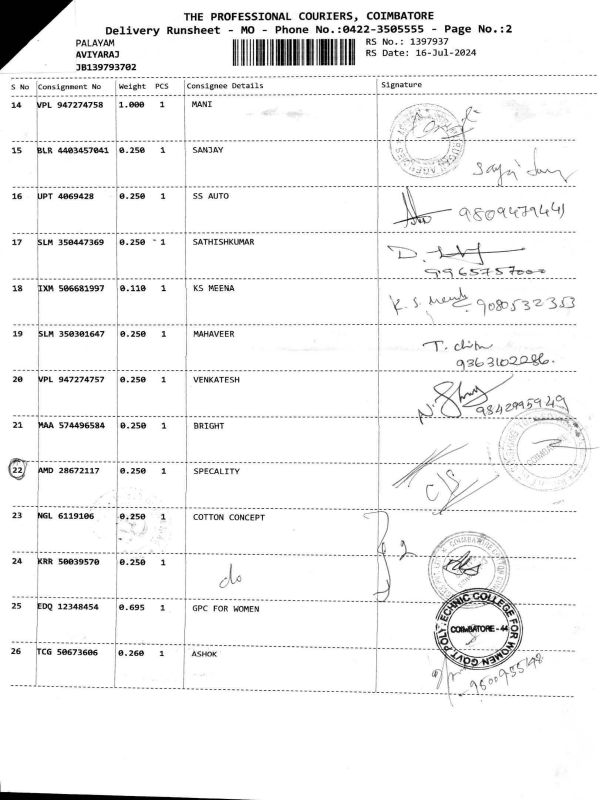 THE PROFESSIONAL COURIERS, COIMBATORE
Delivery Runsheet - MO - Phone No.:0422-3505555 - Page No.:2
PALAYAM
AVIYARAJ
JB139793702
RS No.: 1397937
RS Date: 16-Jul-2024
S No Consignment No Weight PCS Consignee Details Signature
14 VPL 947274758 1.000 1 MANI
15 BLR 4403457041 0.250 1 SANJAY
16 UPT 4069428 0.250 1 SS AUTO
9809479441
17 SLM 350447369 0.250 1 SATHISHKUMAR
9965757000
18 IXM 506681997 0.110 1 KS MEENA
K. S. Meena 9080532353
19 SLM 350301647 0.250 1 MAHAVEER
9363102286.
20 VPL 947274757 0.250 1 VENKATESH
9842995949
21 MAA 574496584 0.250 1 BRIGHT
22 AMD 28672117 0.250 1 SPECALITY
23 NGL 6119106 0.250 1 COTTON CONCEPT
2
24 KRR 50039570 0.250 1
do
25 EDQ 12348454 0.695 1 GPC FOR WOMEN
COIMBATORE - 44
26 TCG 50673606 0.260 1 ASHOK